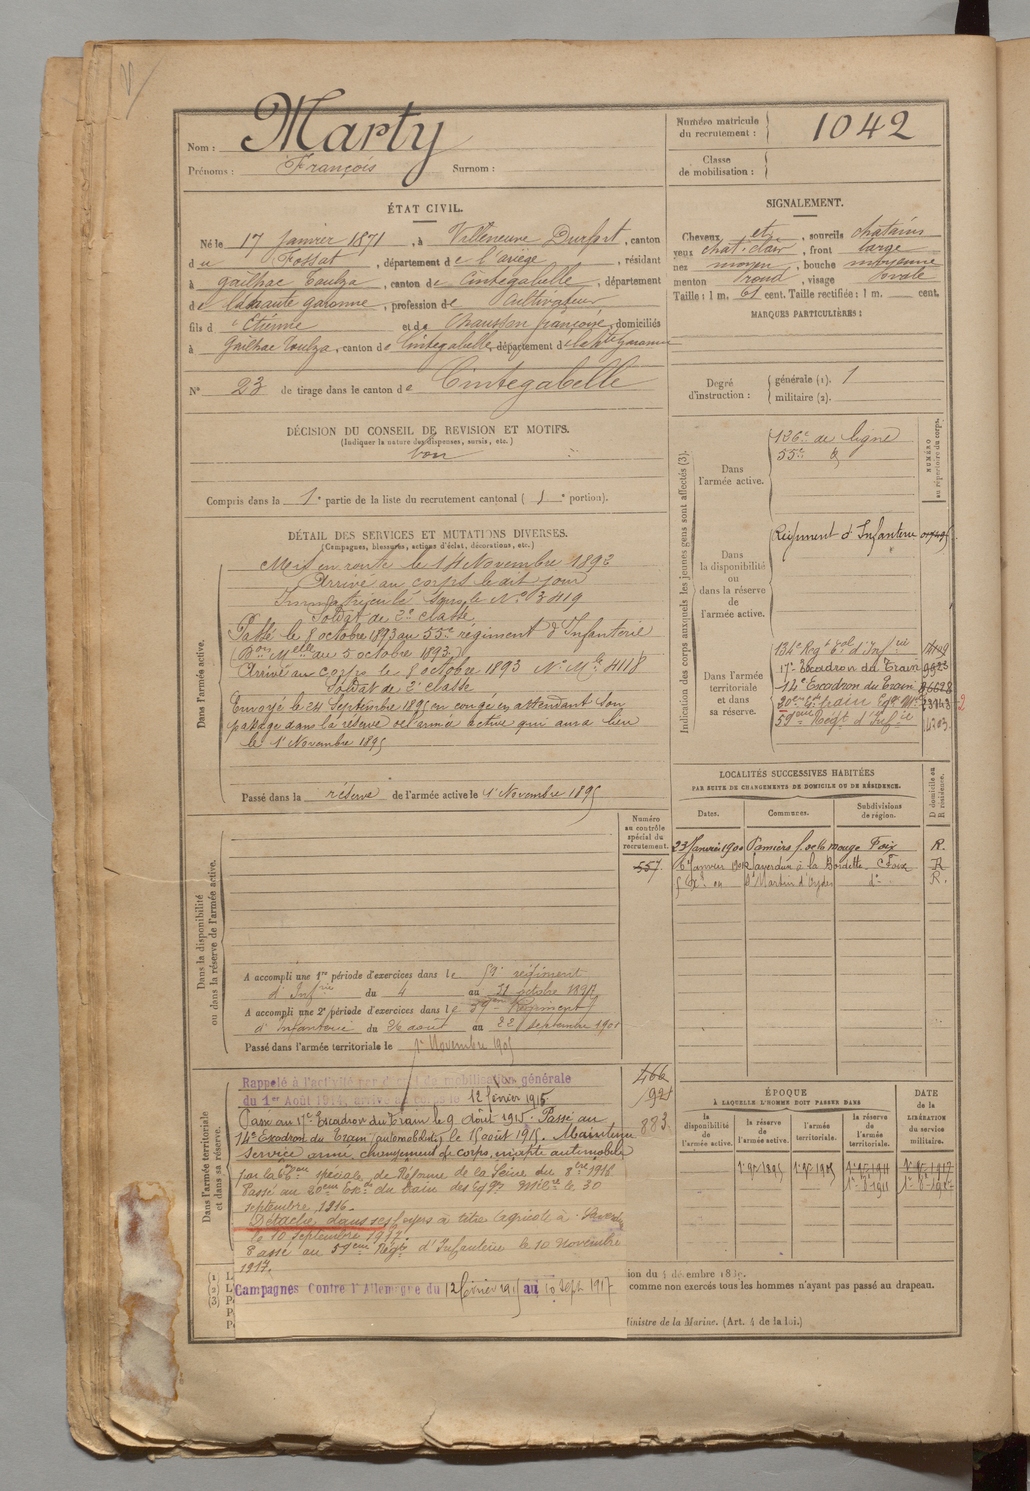 Nom : Marty
Prénoms : François Surnom :
Numéro matricule
du recrutement : 1042
Classe
de mobilisation :
ÉTAT CIVIL.
Né le 17 Janvier 1871, à Villeneuve Durfort, canton
du Fossat, département de l'ariège, résidant
à gailhac Toulza, canton de Cintegabelle, département
de la haute garonne, profession de Cultivateur
fils d' Etienne et de Chausson françoise, domiciliés
à gailhac Toulza, canton de Cintegabelle, département de la hte Garonne
N° 23 de tirage dans le canton de Cintegabelle
SIGNALEMENT.
Cheveux et, sourcils chatains
yeux chat. clair, front large
nez moyen, bouche moyenne
menton rond, visage ovale
Taille : 1 m. 61 cent. Taille rectifiée : 1 m. cent.
MARQUES PARTICULIÈRES :
Degré
d'instruction :
générale (1). 1
militaire (2).
DÉCISION DU CONSEIL DE REVISION ET MOTIFS.
(Indiquer la nature des dispenses, sursis, etc.)
bon
Compris dans la 1e partie de la liste du recrutement cantonal ( 1e portion).
DÉTAIL DES SERVICES ET MUTATIONS DIVERSES.
(Campagnes, blessures, actions d'éclat, décorations, etc.)
Dans l'armée active.
Mis en route le 14 Novembre 1892
Arrivé au corps le dit jour
Immatriculé sous le No 3419
Soldat de 2e classe
Passé le 8 octobre 1893 au 55e régiment d'Infanterie
(Don Melle du 5 octobre 1893)
Arrivé au corps le 8 octobre 1893 No Mle 4118
Soldat de 2e classe
Envoyé le 24 Septembre 1895 en congé en attendant son
passage dans la réserve de l'armée active qui aura lieu
le 1er Novembre 1895
Passé dans la réserve de l'armée active le 1er Novembre 1895
Indication des corps auxquels les jeunes gens sont affectés (3).
NUMÉRO
au répertoire du corps.
Dans
l'armée active.
126e de ligne
55e d°
Dans
la disponibilité
ou
dans la réserve
de
l'armée active.
Régiment d'Infanterie
Dans l'armée
territoriale
et dans
sa réserve.
134e Rég. tal d'Infrie
17e Escadron du Train
14e Escadron du Train
20eme Esc train Eqe Mre
59eme Regt d'Infie
LOCALITÉS SUCCESSIVES HABITÉES
PAR SUITE DE CHANGEMENTS DE DOMICILE OU DE RÉSIDENCE.
Dates. Communes. Subdivisions
de région.
D domicile ou
R résidence.
23 Janvier 1900 Pamiers f. de la rouge Foix R.
6 Janvier 1902 Saverdun à la Bordette Foix R
St Martin d'Oydes do R.
Numéro
au contrôle
spécial du
recrutement.
557
Dans la disponibilité
ou dans la réserve de l'armée active.
A accompli une 1re période d'exercices dans le 59e régiment
d'Infrie du 4 au 31 octobre
A accompli une 2e période d'exercices dans le 59eme Régiment
d'Infanterie du 26 août au 22 septembre 1901
Passé dans l'armée territoriale le 1er Novembre 1905
466
925
883
Dans l'armée territoriale
et dans sa réserve.
Rappelé à l'activité par décret de mobilisation générale
du 1er Août 1914, arrivé au corps le 12 février 1915.
Passé au 17e Escadron du Train le 9 août 1915. Passé au
14e Escadron du Train (automobiliste) le 15 août 1915. Maintenu
Service armé, changement de corps, inapte automobile
par la 6eme Con spéciale de Réforme de la Seine du 8 bre 1916
Passé au 20eme Esc. du train des Eqges Mres le 30
septembre 1916.
Détaché dans ses foyers à titre Agricole à Saverdun
le 10 septembre 1917.
Passé au 59eme Régt d'Infanterie le 10 Novembre
1917.
Campagnes Contre l'Allemagne du 12 février 1915 au 10 Sept 1917
ÉPOQUE
À LAQUELLE L'HOMME DOIT PASSER DANS
la
disponibilité
de
l'armée active.
la réserve
de
l'armée active.
l'armée
territoriale.
la réserve
de
l'armée
territoriale.
DATE
de la
LIBÉRATION
du service
militaire.
1er 9bre 1895 1er 9bre 1905 1er 9bre 1911 1er 9bre 1917
comme non exercés tous les hommes n'ayant pas passé au drapeau.
Ministre de la Marine. (Art. 4 de la loi.)